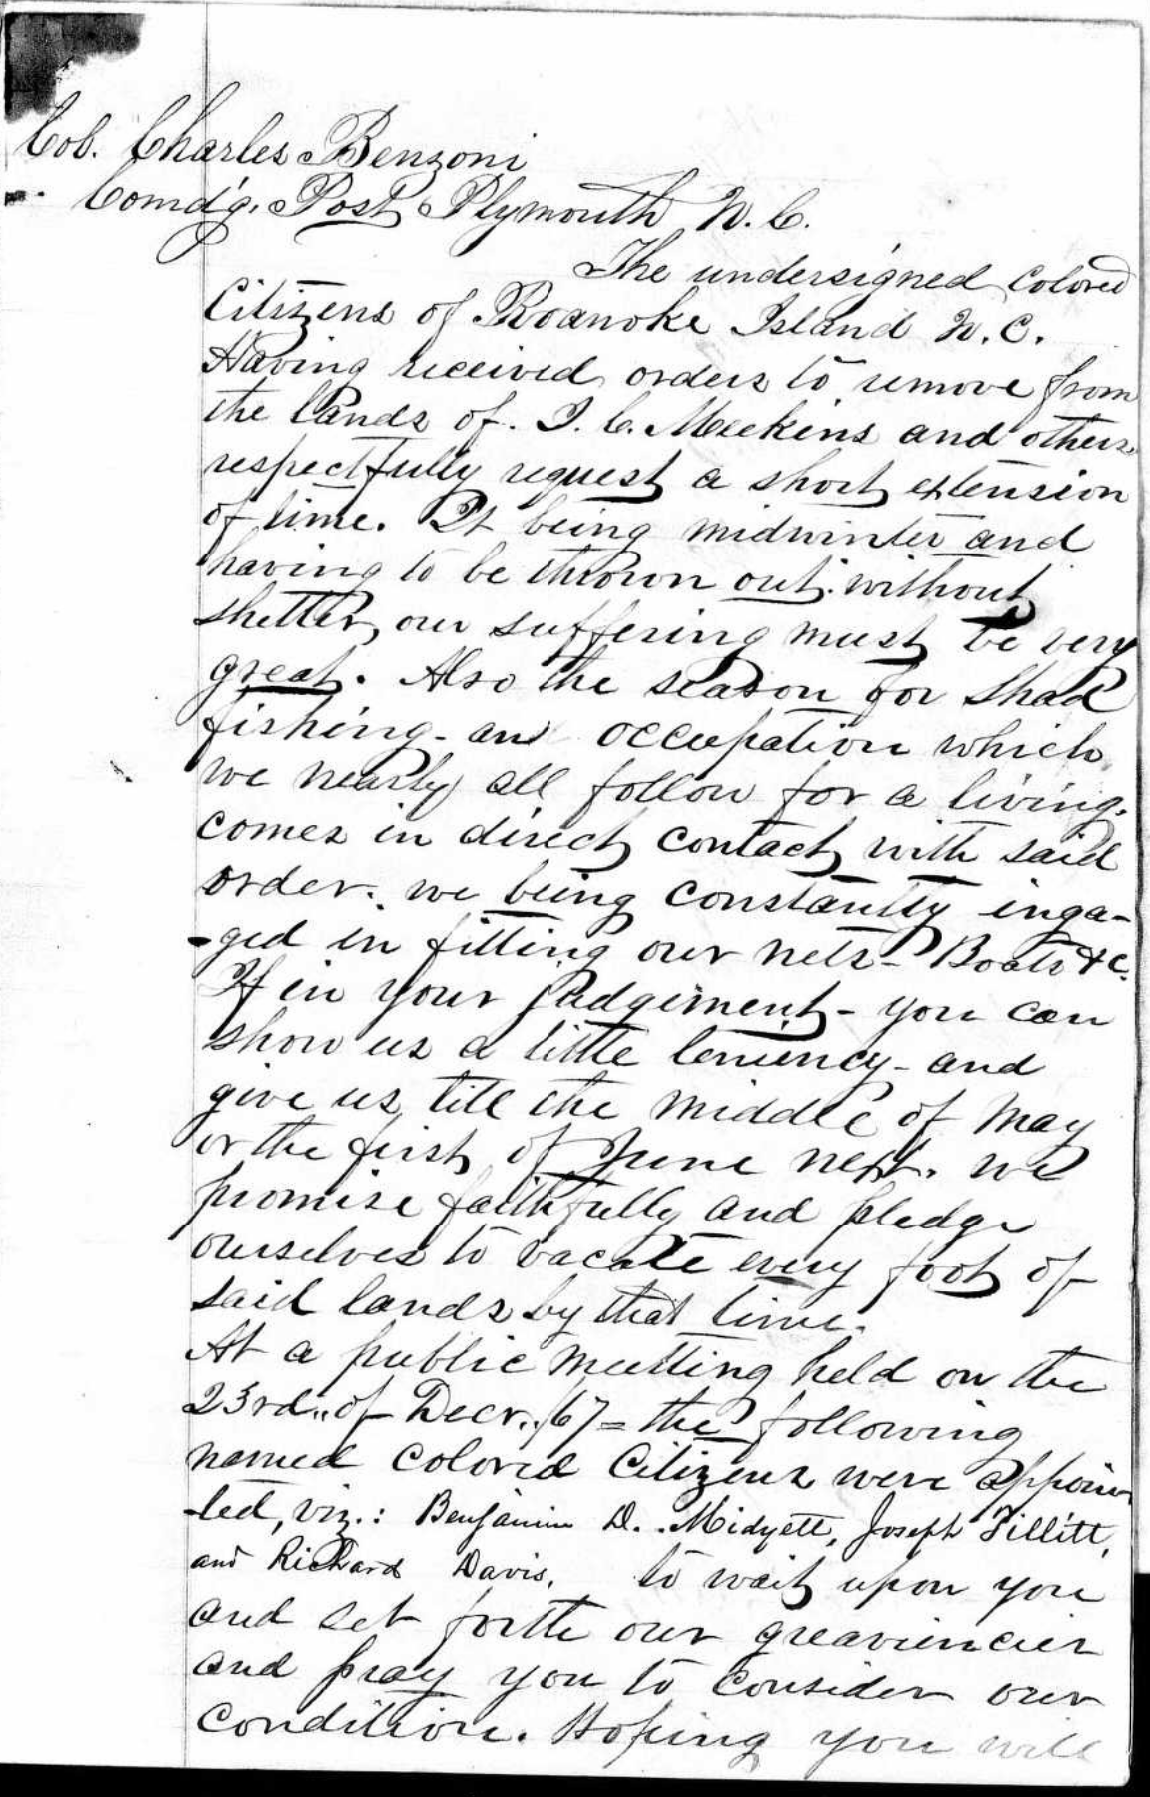 Col. Charles Benzoni
Comd'g. Post Plymouth N. C.
The undersigned colored
Citizens of Roanoke Island N. C.
Having received orders to remove from
the lands of. I. C. Meekins and others
respectfully request a short extension
of time. It being midwinter and
having to be thrown out. without
shelter, our suffering must be very
great. Also the season for Shad
fishing - an occupation which
we nearly all follow for a living.
comes in direct contact with said
order. we being constantly inga-
-ged in fitting our nets - Boats &c.
If in your judgement - you can
show us a little leniency - and
give us till the middle of May
or the first of June next. we
promise faithfully and pledge
ourselves to vacate every foot of
said lands by that time.
At a public meeting held on the
23rd., of Decr., /67 = the following
named colored Citizens were appoin
-ted, viz.: Benjamin D. Midyett, Joseph Tillitt,
and Richard Davis, to wait upon you
and set forth our greaviencies
and pray you to consider our
condition. Hoping you will